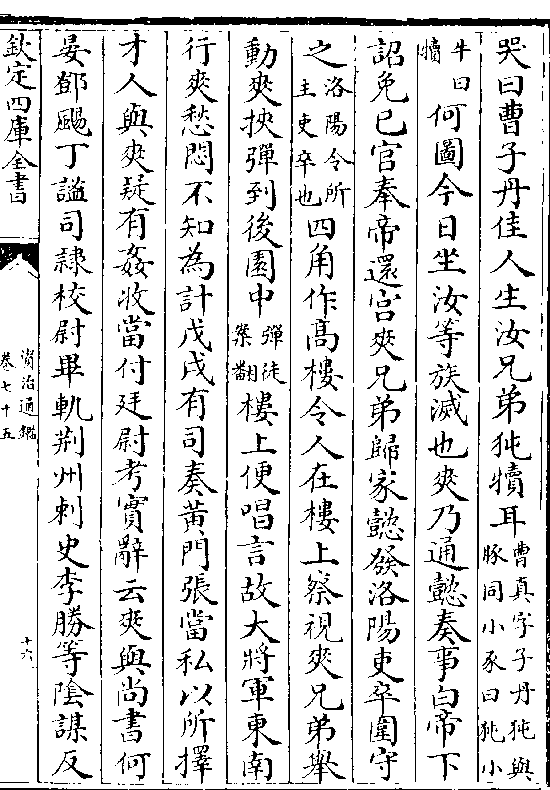 哭曰曹子丹佳人生汝兄弟㹠犢耳曹真字子丹㹠與豚同小豕曰㹠小
牛曰犢何圖今日坐汝等族滅也爽乃通懿奏事白帝下
詔免已官奉帝還宫爽兄弟歸家懿發洛陽吏卒圍守
之洛陽令所主吏卒也四角作高樓令人在樓上察視爽兄弟舉
動爽挾彈到後園中彈徒案翻樓上便唱言故大將軍東南
行爽愁悶不知為計戊戌有司奏黄門張當私以所擇
才人與爽疑有姦收當付廷尉考實辭云爽與尚書何
晏鄧颺丁謐司隷校尉畢軌荆州刺史李勝等陰謀反
欽定四庫全書
資治通鑑
卷七十五
十六